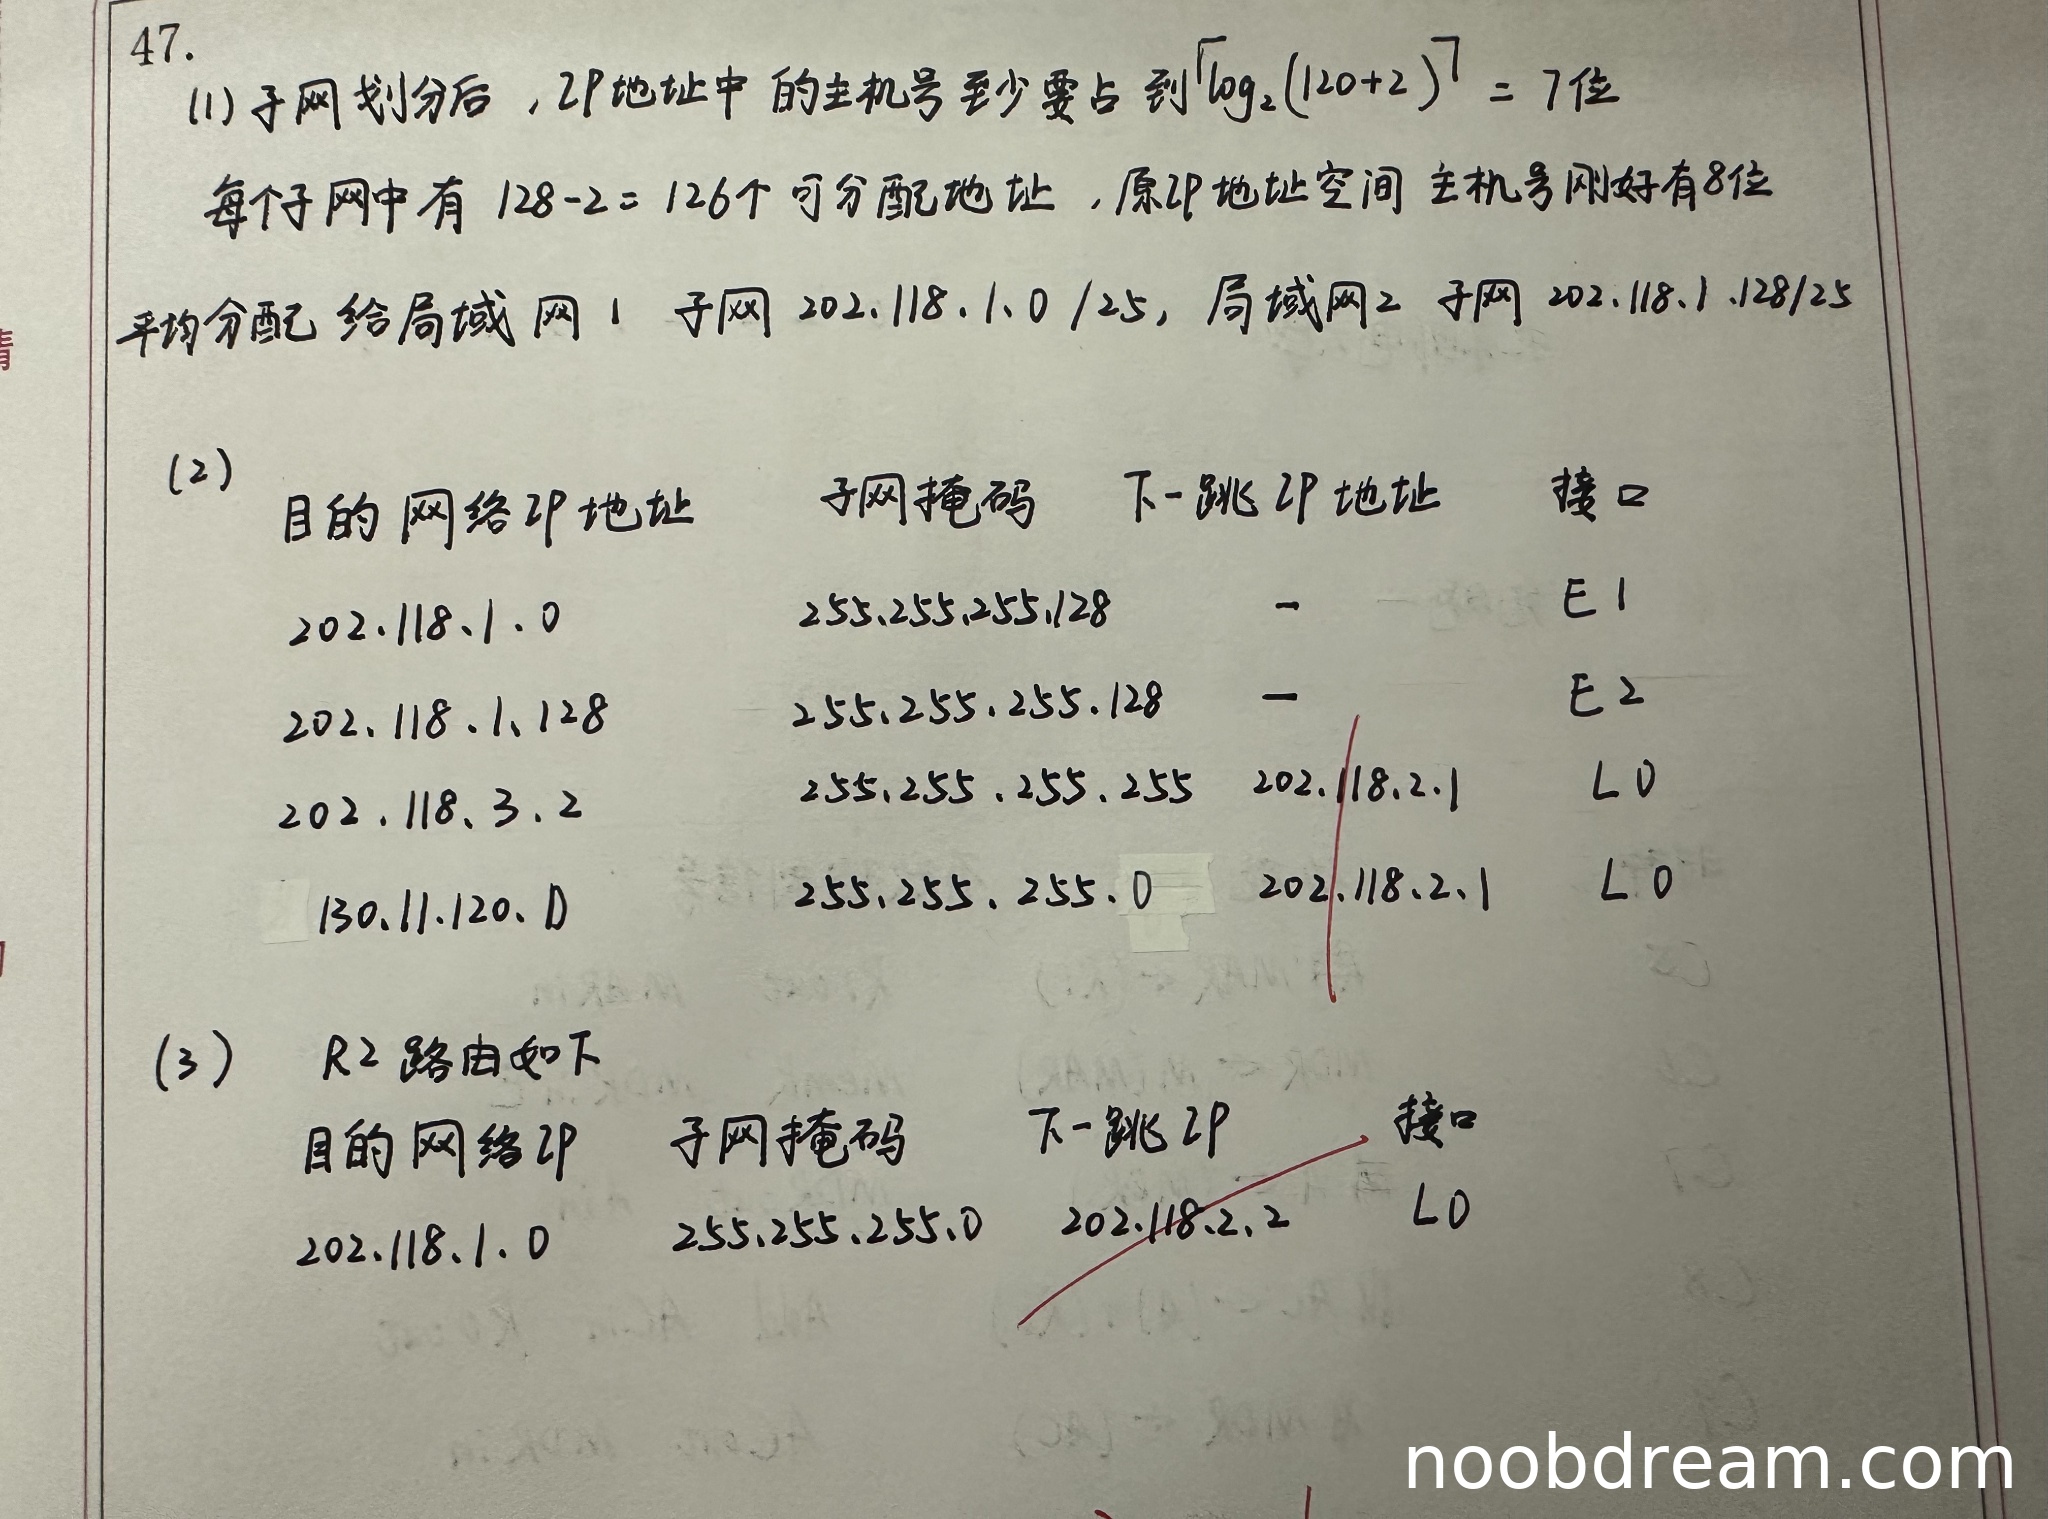 47.
(1) 子网划分后，IP地址中的主机号至少要占到⌈log₂(120+2)⌉ = 7位
每个子网中有 128-2=126个可分配地址，原IP地址空间主机号刚好有8位
平均分配给局域网1 子网 202.118.1.0/25, 局域网2 子网 202.118.1.128/25
(2)
目的网络IP地址 子网掩码 下一跳IP地址 接口
202.118.1.0 255.255.255.128 - E1
202.118.1.128 255.255.255.128 - E2
202.118.3.2 255.255.255.255 202.118.2.1 L0
130.11.120.0 255.255.255.0 202.118.2.1 L0
(3) R2路由如下
目的网络IP 子网掩码 下一跳IP 接口
202.118.1.0 255.255.255.0 202.118.2.2 L0
noobdream.com